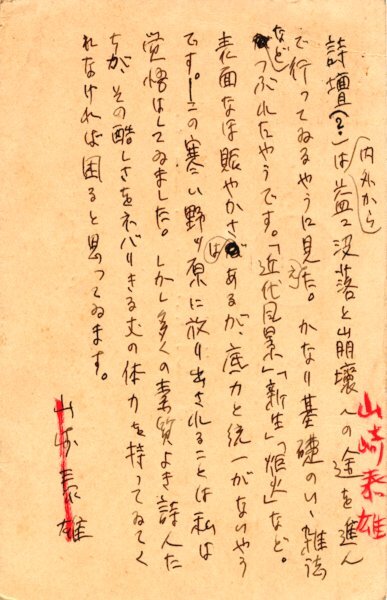 詩壇(?)は益々没落と崩壊への途を進ん
内外から
で行ってゐるやうに見えた。かなり基礎のいゝ雑誌
などつぶれたやうです。「近代風景」「新生」「炬火」など。
表面なほ賑やかさはあるが、底力と統一がないやう
です。―この寒い野ッ原に放り出されることは私は
覚悟はしてゐました。しかし多くの素質よき詩人た
ちが、その酷しさをネバりきる丈の体力を持ってゐてく
れなければ困ると思ってゐます。
山崎泰雄
山崎泰雄